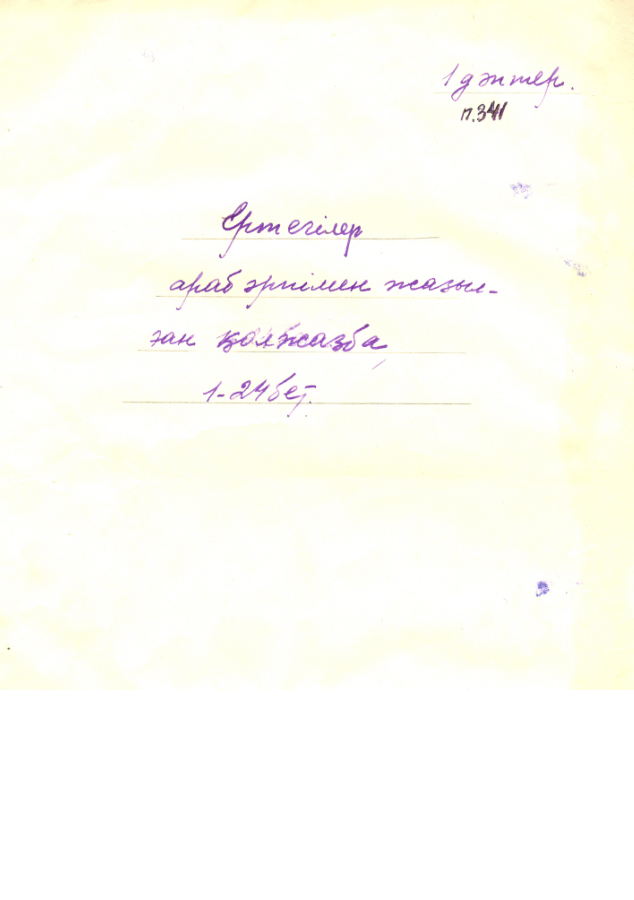 1 дәптер.
п.341
Ертегілер
араб әрпімен жазыл-
ған қолжазба
1-24 бет.